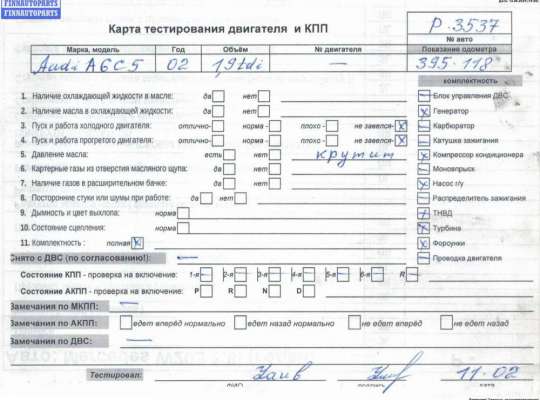 FINNAUTOPARTS
FINNAUTOPARTS
Карта тестирования двигателя и КПП
Р-3537
№ авто
Марка, модель Год Объём № двигателя Показание одометра
Audi A6C5 02 1,9tdi — 395-118
комплектность
1. Наличие охлаждающей жидкости в масле: да нет
Блок управления ДВС
2. Наличие масла в охлаждающей жидкости: да нет
Генератор
3. Пуск и работа холодного двигателя: отлично- норма - плохо - не завелся- x
Карбюратор
4. Пуск и работа прогретого двигателя: отлично- норма - плохо - не завелся- x
Катушка зажигания
5. Давление масла: есть нет крутит
Компрессор кондиционера
6. Картерные газы из отверстия масляного щупа: да нет
Моновпрыск
7. Наличие газов в расширительном бачке: да нет
Насос г/у
8. Посторонние стуки или шумы при работе: да нет
Распределитель зажигания
9. Дымность и цвет выхлопа: норма
ТНВД
10. Состояние сцепления: норма
Турбина
11. Комплектность : полная x
Форсунки
Снято с ДВС (по согласованию!): —
Проводка двигателя
Состояние КПП - проверка на включение: 1-я 2-я 3-я 4-я 5-я 6-я R
Состояние АКПП - проверка на включение: P R N D
Замечания по МКПП: —
Замечания по АКПП: едет вперёд нормально едет назад нормально не едет вперёд не едет назад
Замечания по ДВС: —
Тестировал: 11-02